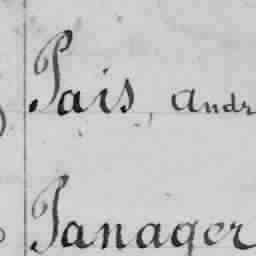 Pais, Andr
Panager